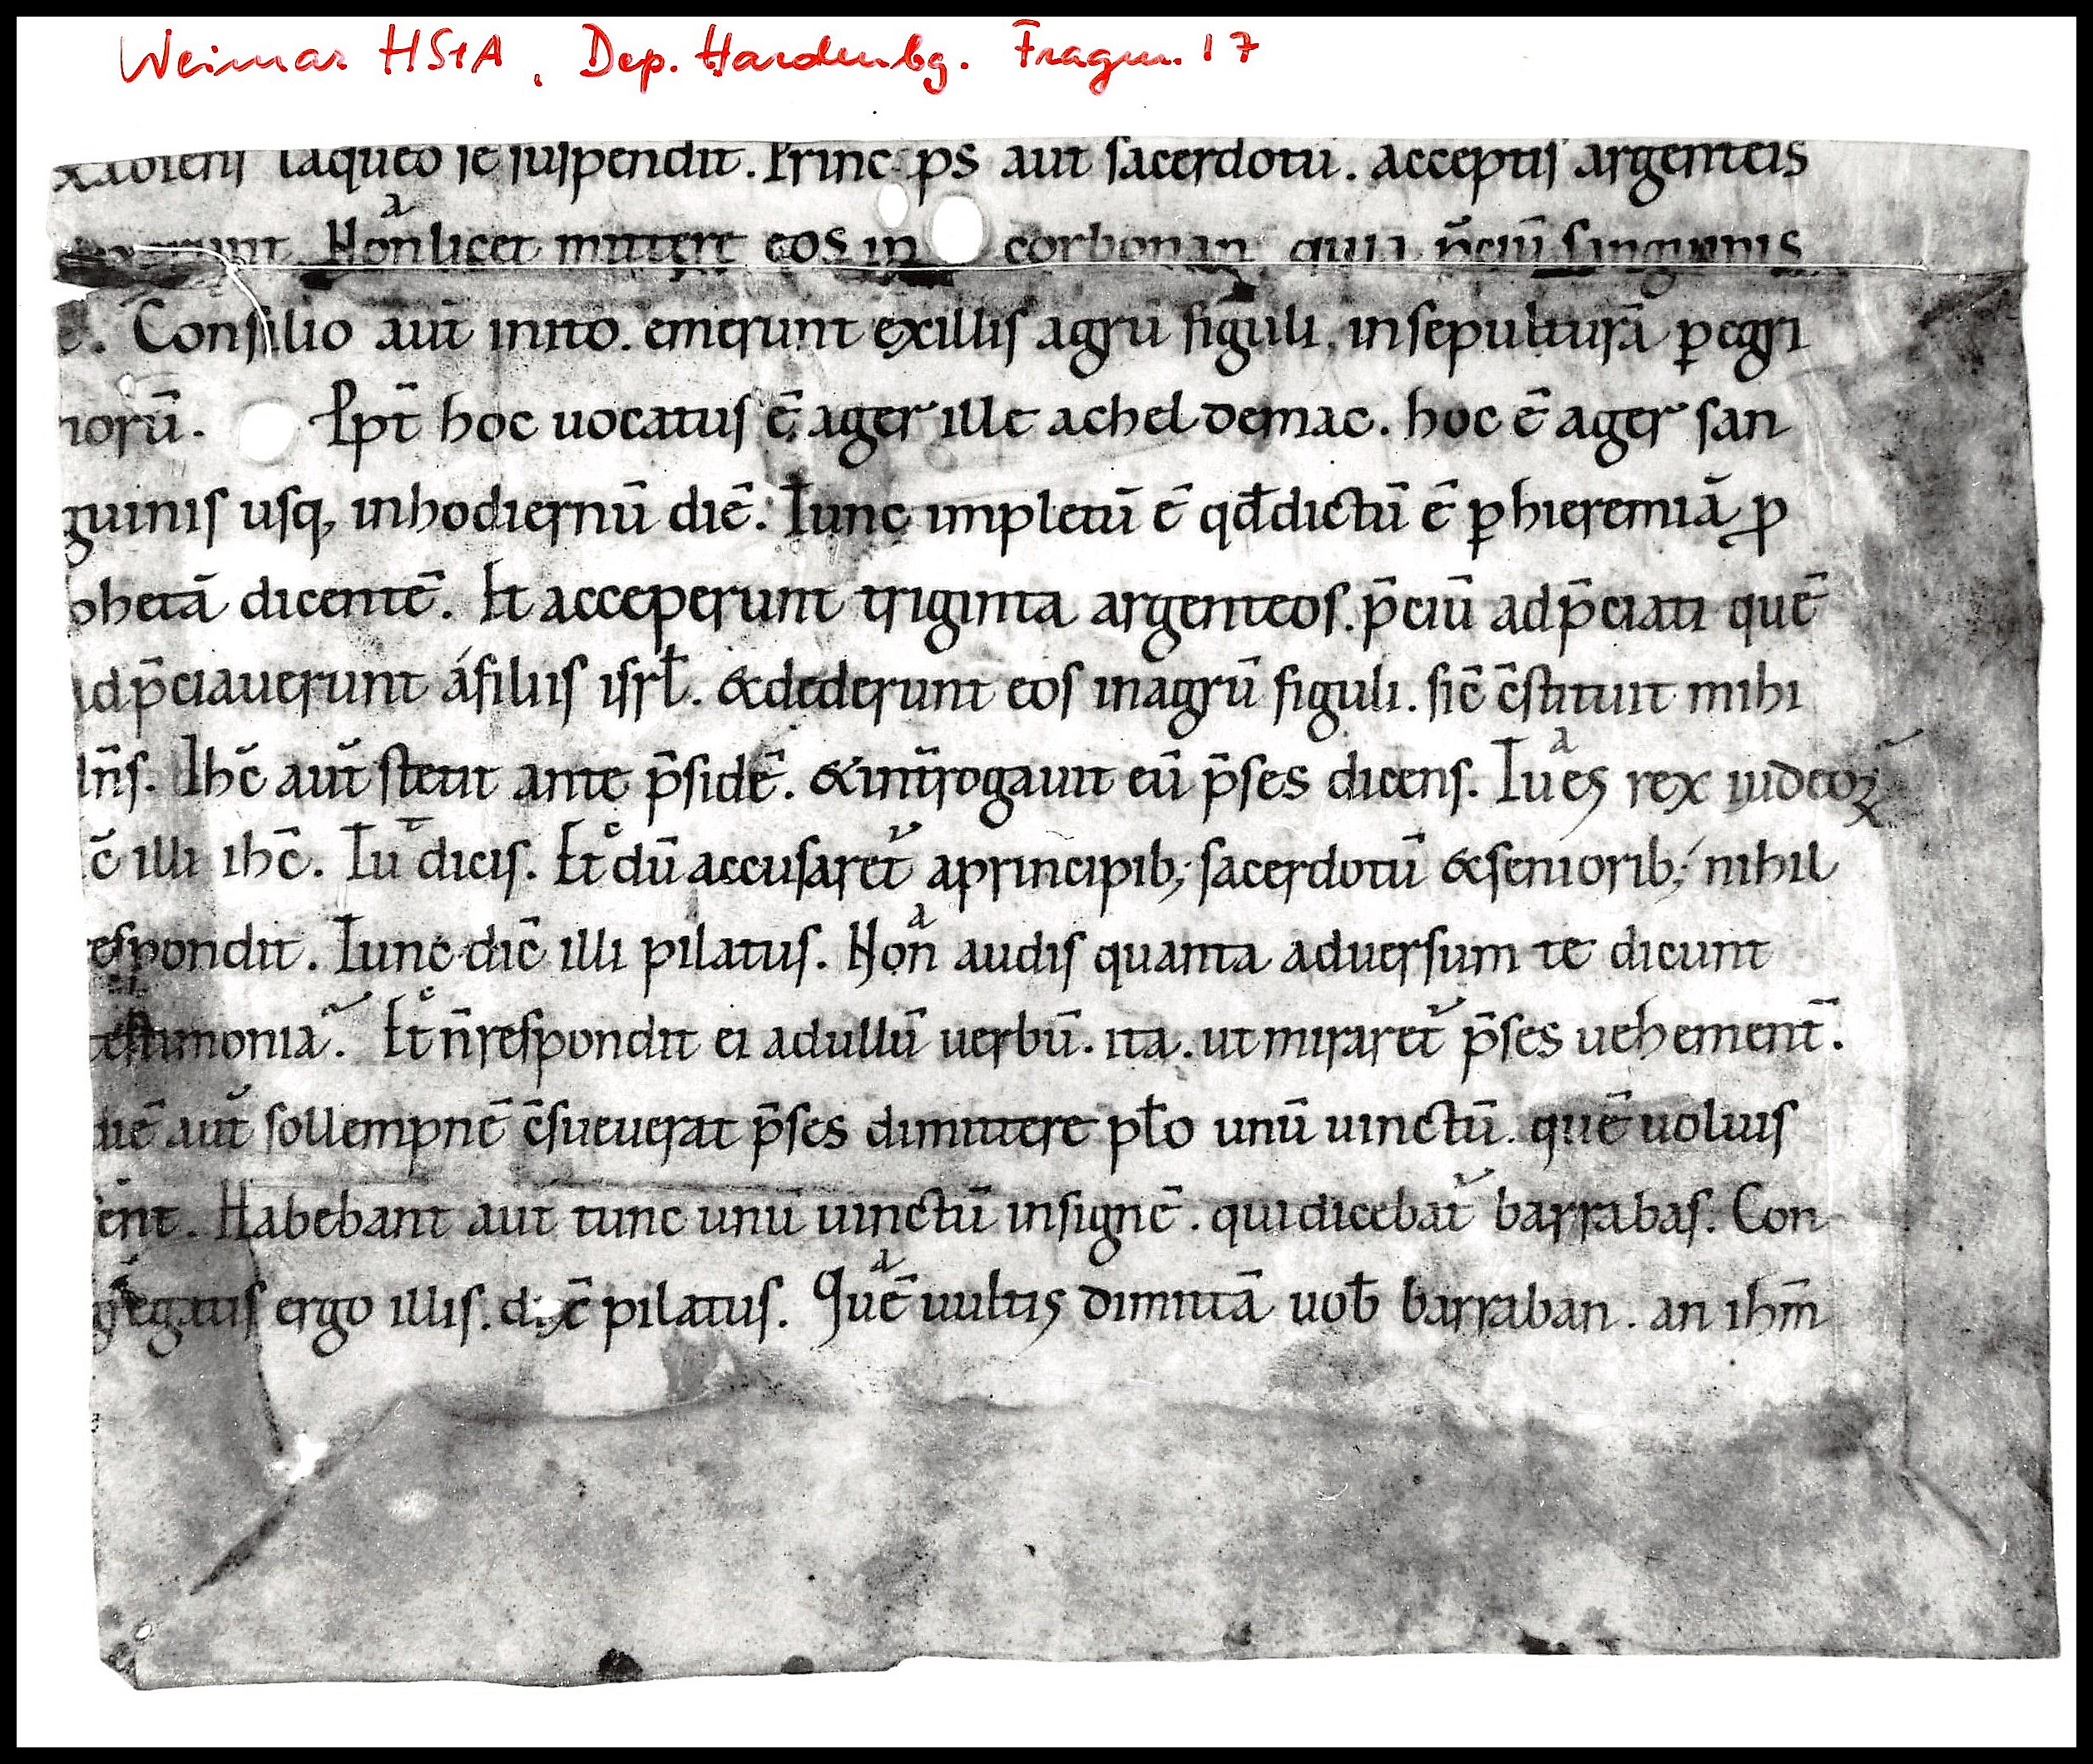 Weimar HStA, Dep. Hardenbg. Fragm. 17
laqueo se suspendit. Princ ps aut sacerdotū. acceptis argenteis
Non licet mittere eos in corbonan quia p̄ciū sanguinis
ē. Consilio aūt inito. emerunt exillis agrū figuli. insepulturā ꝑegri
norū. Ppt̄ hoc uocatus ē ager ille acheldemac. hoc ē ager san
guinis usq, inhodiernū diē. Tunc impletū ē qđdictū ē ꝑhieremiā ꝓ
phetā dicentē. Et acceperunt triginta argenteos. p̄ciū adp̄ciati quē
adp̄ciauerunt áfiliis isrł. &dederunt eos inagrū figuli. sic̄ c̄stituit mihi
dn̄s. Ihc̄ aūt stetit ante p̄sidē. &int̄rogauit eū p̄ses dicens. Tu es rex iudeoꝝ
c̄ illi ihc̄. Tu dicis. Et dū accusaret̄ aprincipib; sacerdotū &seniorib; nihil
respondit. Tunc dic̄ illi pilatus. Non audis quanta aduersum te dicunt
testimonia. Et n̄respondit ei adullū uerbū. ita. ut miraret̄ p̄ses uehement̄.
diē aūt sollempnē c̄sueuerat p̄ses dimittere pło unū uinctū. quē uoluis
sēnt. Habebant aūt tunc unū uinctū insignē. quidicebat̄ barrabas. Con
gregatis ergo illis. dic̄ pilatus. Quē uultis dimittā uob̄ barraban. an ihm̄